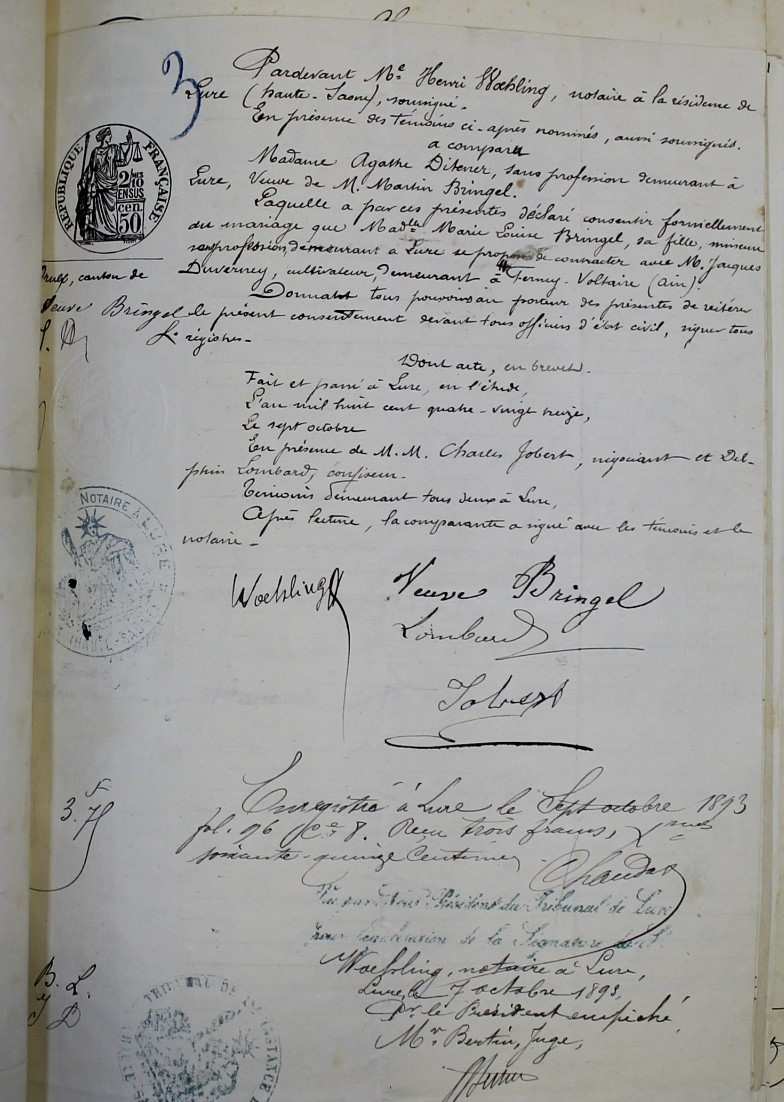 3
Pardevant Me Henri Woehling, notaire à la résidence de
Lure (haute-Saône), soussigné.
En présence des témoins ci-après nommés, aussi soussignés.
a comparu
Madame Agathe Ditener, sans profession demeurant à
Lure, Veuve de M. Martin Bringel.
Laquelle a par ces présentes déclaré consentir formellement
au mariage que Madlle Marie Louise Bringel, sa fille, mineure
sans profession, demeurant à Lure se propose de contracter avec M. Jacques
Duverney, cultivateur, demeurant à Ferney-Voltaire (Ain).
Donnant tous pouvoirs au porteur des présentes de réitérer
le présent consentement devant tous officiers d'état civil, signer tous
registres.
Dont acte, en brevet.
Fait et passé à Lure, en l'étude,
L'an mil huit cent quatre-vingt treize,
Le sept octobre
En présence de M.M. Charles Jobert, négociant et Del-
phin Lombard, confiseur.
Témoins demeurant tous deux à Lure,
Après lecture, la comparante a signé avec les témoins et le
notaire.
RÉPUBLIQUE FRANÇAISE
2/10 EN SUS
50 cen
canton de
Veuve Bringel
NOTAIRE A LURE
HAUTE-SAÔNE
Woehling
Veuve Bringel
Lombard
Jobert
3 f 75
Enregistré à Lure le Sept octobre 1893
fol. 96 Ce 8. Reçu trois francs,
soixante-quinze Centimes
Vu par Nous Président du Tribunal de Lure
pour légalisation de la Signature de M.
Woehling, notaire à Lure,
Lure, le 7 octobre 1893,
Pr le Président empêché,
Mr Bertin, Juge,
B. L.
TRIBUNAL DE INSTANCE